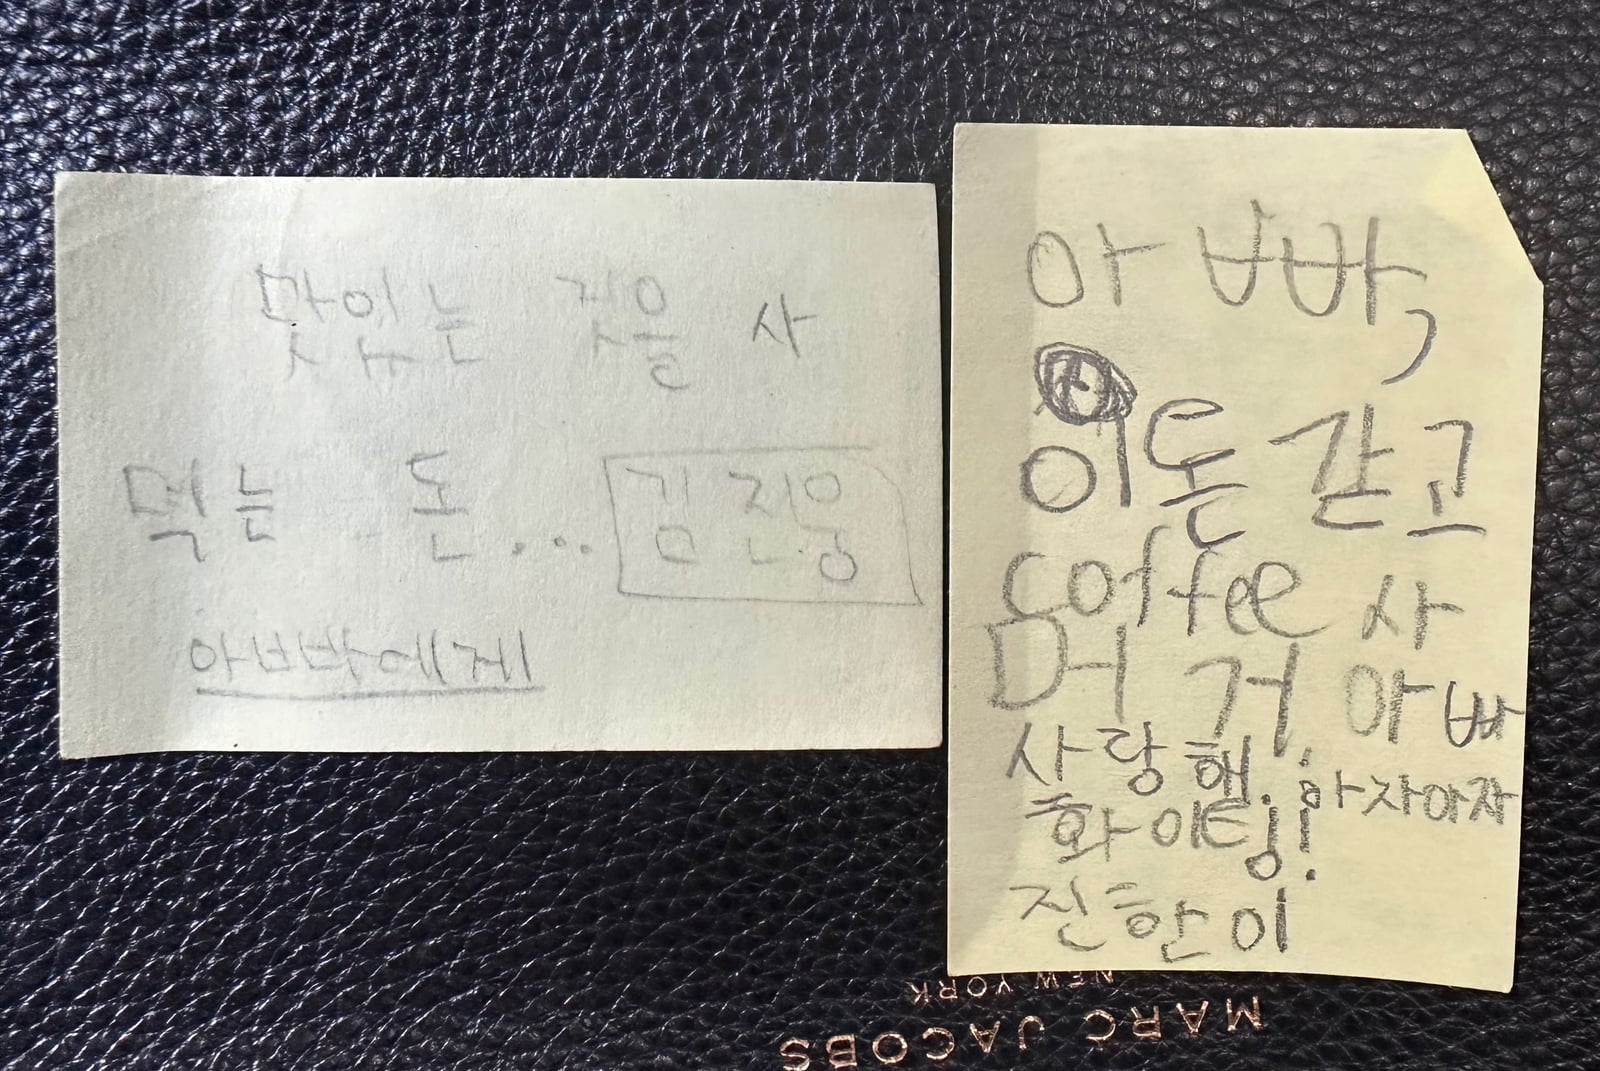 맛있는 것을 사
먹는 돈... 김진웅
아빠에게
아빠,
이돈 갇고
coffee 사
머거. 아빠
사랑해! 아자아자
화이팅!
진한이
MARC JACOBS
NEW YORK